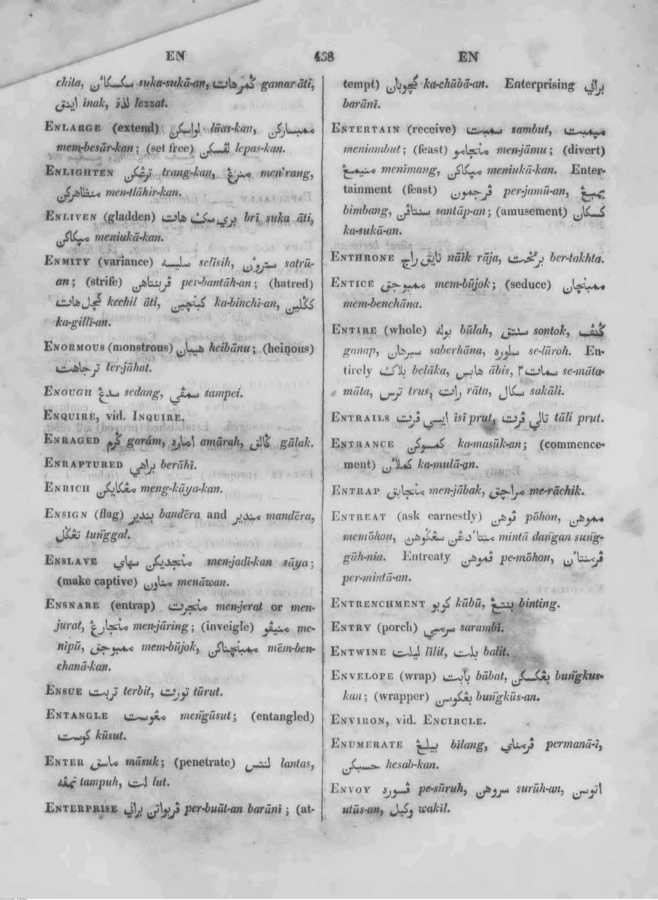 EN 438 EN
chita, سكسكاٴن suka-sukā-an, گمرهات gamar āti,
ايدق inak, لذة lezzat.
ENLARGE (extend) لواسكن lūas-kan, ممبساركن
mem-besār-kan; (set free) لفسكن lepas-kan.
ENLIGHTEN ترڠكن trang-kan, منرڠ men'rang,
منظاهركن men-tlāhir-kan.
ENLIVEN (gladden) بري سك هات brī suka āti,
ميكاكن meniukā-kan.
ENMITY (variance) سليسه selīsih, سترون satrū-
an; (strife) فربنتاهن per-bantāh-an; (hatred)
كچل هات kechil āti, كبنچين ka-binchi-an, ككلين
ka-gilli-an.
ENORMOUS (monstrous) هيبان heibānu; (heinous)
ترجاهت ter-jāhat.
ENOUGH سدڠ sedang, سمفي sampei.
ENQUIRE, vid. INQUIRE.
ENRAGED گرم garám, اماره amārah, گالق gālak.
ENRAPTURED براهي berāhi.
ENRICH مڠكايكن meng-kāya-kan.
ENSIGN (flag) بندير bandēra and منديز mandēra,
تڠگل tuṅggal.
ENSLAVE منجديكن سهاي men-jadi-kan sāya;
(make captive) مناون menāwan.
ENSNARE (entrap) منجرت men-jerat or men-
jurat, منجارڠ men-jāring; (inveigle) منيفو me-
nīpū, ممبوجق mem-būjok, ممبنچناكن mēm-ben-
chanā-kan.
ENSUE تربت terbit, تورت tūrut.
ENTANGLE مڠوست meṅgūsut; (entangled)
كوست kūsut.
ENTER ماسق māsuk; (penetrate) لنتس lantas,
تمفه tampuh, لت lut.
ENTERPRISE فربواتن براني per-buāt-an barūni; (at-
tempt) كچوبان ka-chūbā-an. Enterprising براني
barūni.
ENTERTAIN (receive) سمبت sambut, ميمبت
meniambut; (feast) منجامو men-jāmu; (divert)
منيمڠ menimang, ميكاكن meniukā-kan. Enter-
tainment (feast) فرجمون per-jamū-an, بمبڠ
bimbang, سنتافن santāp-an; (amusement) كسكان
ka-sukā-an.
ENTHRONE نايق راج nāīk rāja, برتخت ber-takhta.
ENTICE ممبوجق mem-būjok; (seduce) ممبنچان
mem-benchāna.
ENTIRE (whole) بوله būlah, سنتق sontok, گنف
ganap, سبرهان saberhāna, سلوره se-lūroh. En-
tirely بلاك belāka, هابس ābis, سمات٢ se-māta-
māta, ترس trus, رات rāta, سكال sakāli.
ENTRAILS ايسي فرت isi prut, تالي فرت tāli prut.
ENTRANCE كمسوكن ka-masūk-an; (commence-
ment) كملاٴن ka-mulā-an.
ENTRAP منجابق men-jābak, مراچق me-rāchik.
ENTREAT (ask earnestly) فوهن pōhon, مموهن
memōhon, منتا دڠن سڠگوهن mintā daṅgan suṅg-
gūh-nia. Entreaty فموهن pe-mōhon, فرمنتاٴن
per-mintā-an.
ENTRENCHMENT كوبو kūbū, بنتڠ binting.
ENTRY (porch) سرمبي sarambi.
ENTWINE ليلت līlit, بلت balit.
ENVELOPE (wrap) بابت bābat, بڠكسكن buṅgkus-
kan; (wrapper) بڠكوسن buṅgkūs-an.
ENVIRON, vid. ENCIRCLE.
ENUMERATE بيلڠ bilang, فرمناي permanā-i,
حسبكن hesab-kan.
ENVOY فسوره pe-sūruh, سروهن surūh-an, اتوسن
utūs-an, وكيل wakīl.